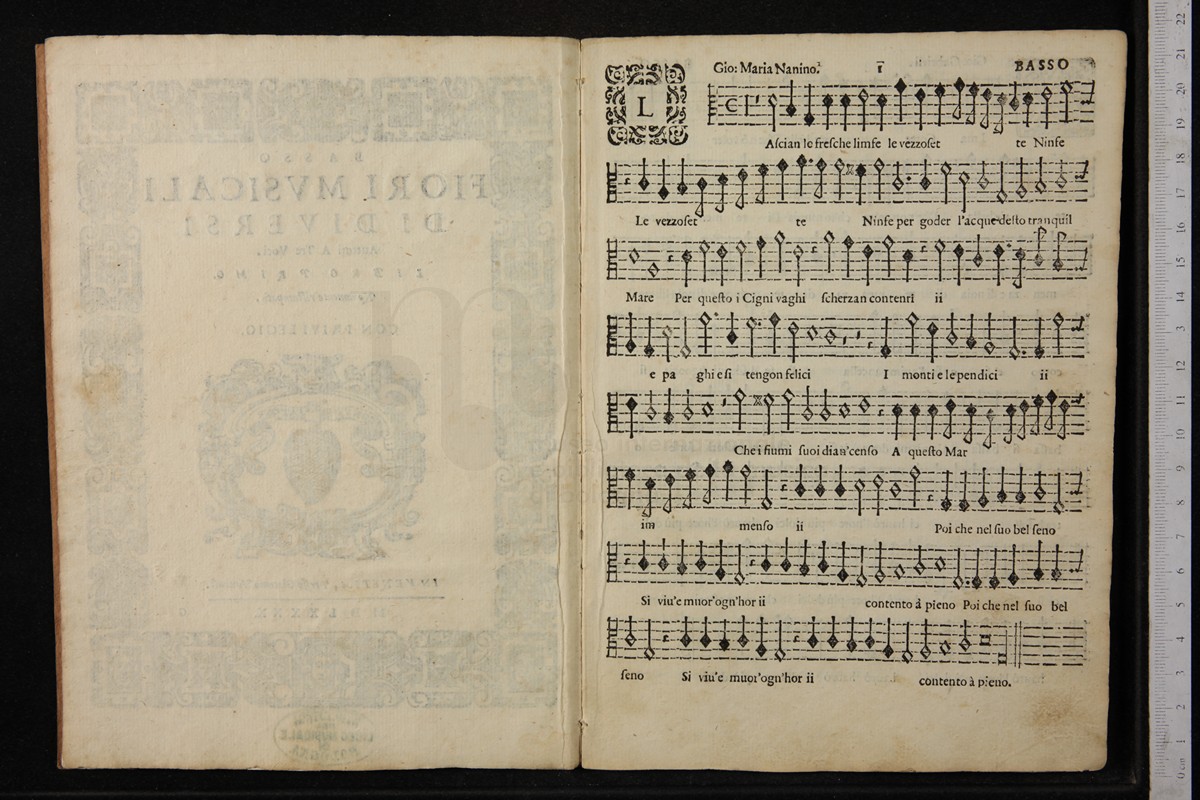 BASSO
FIORI MVSICALI
DI DIVERSI
A Tre Voci.
LIBRO PRIMO.
CON PRIVILEGIO.
Gio: Maria Nanino. 1 BASSO
L
Aſcian le freſche limfe le vezzoſet te Ninfe
Le vezzoſet te Ninfe per goder l'acque deſto tranquil
Mare Per queſto i Cigni vaghi ſcherzan contenti ii
e pa ghi e ſi tengon felici I monti e le pendici ii
Che i fiumi ſuoi dian'cenſo A queſto Mar
im menſo ii Poi che nel ſuo bel ſeno
Si viu'e muor'ogn'hor ii contento à pieno Poi che nel ſuo bel
ſeno Si viu'e muor'ogn'hor ii contento à pieno.